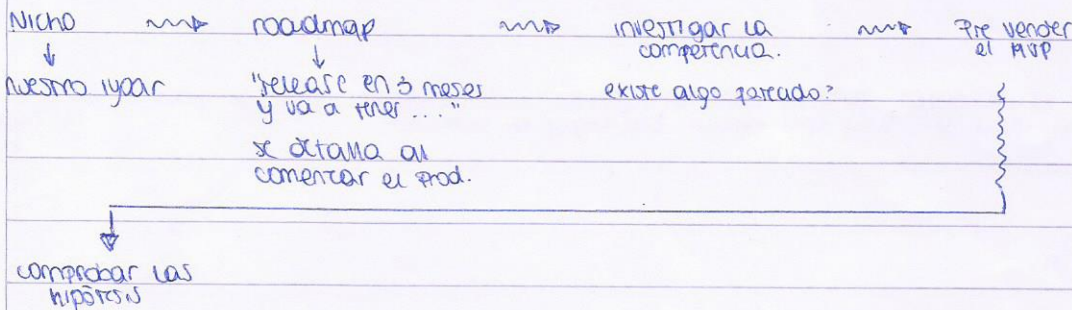 Nicho
roadmap
investigar la
competencia.
Pre vender
el MVP
nuestro lugar
"release en 3 meses
y va a tener ..."
se detalla al
comenzar el prod.
existe algo pareado?
comprobar las
hipótesis